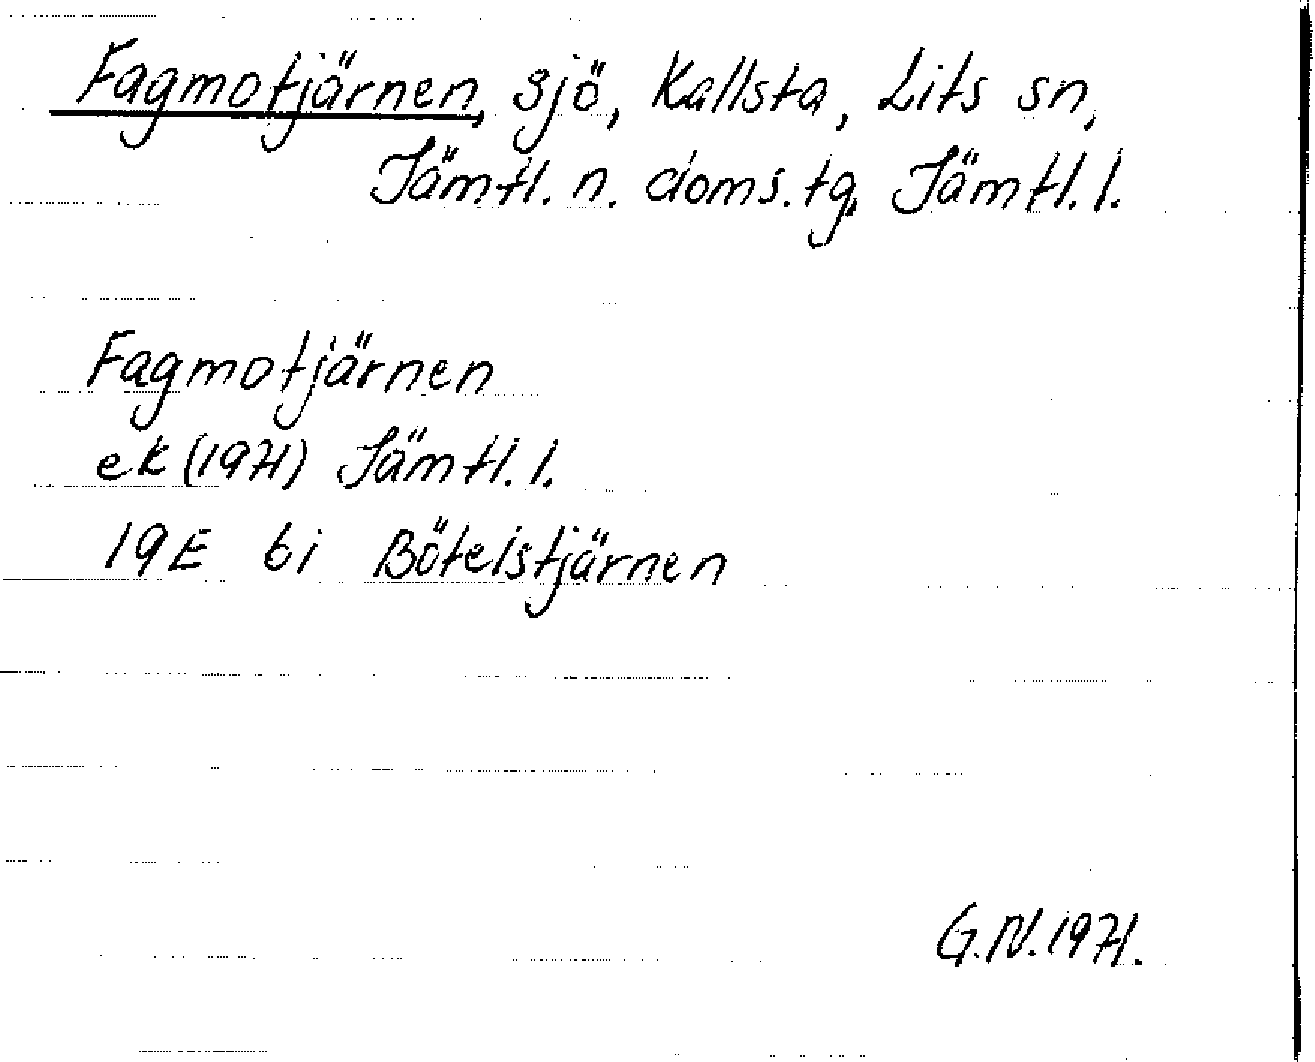 Fagmotjärnen, sjö, Kallsta, Lits sn,
Jämtl. n. doms.tg, Jämtl. l.
Fagmotjärnen
ek (1971) Jämtl. l.
19E 6i Bötelstjärnen
G.N. 1971.